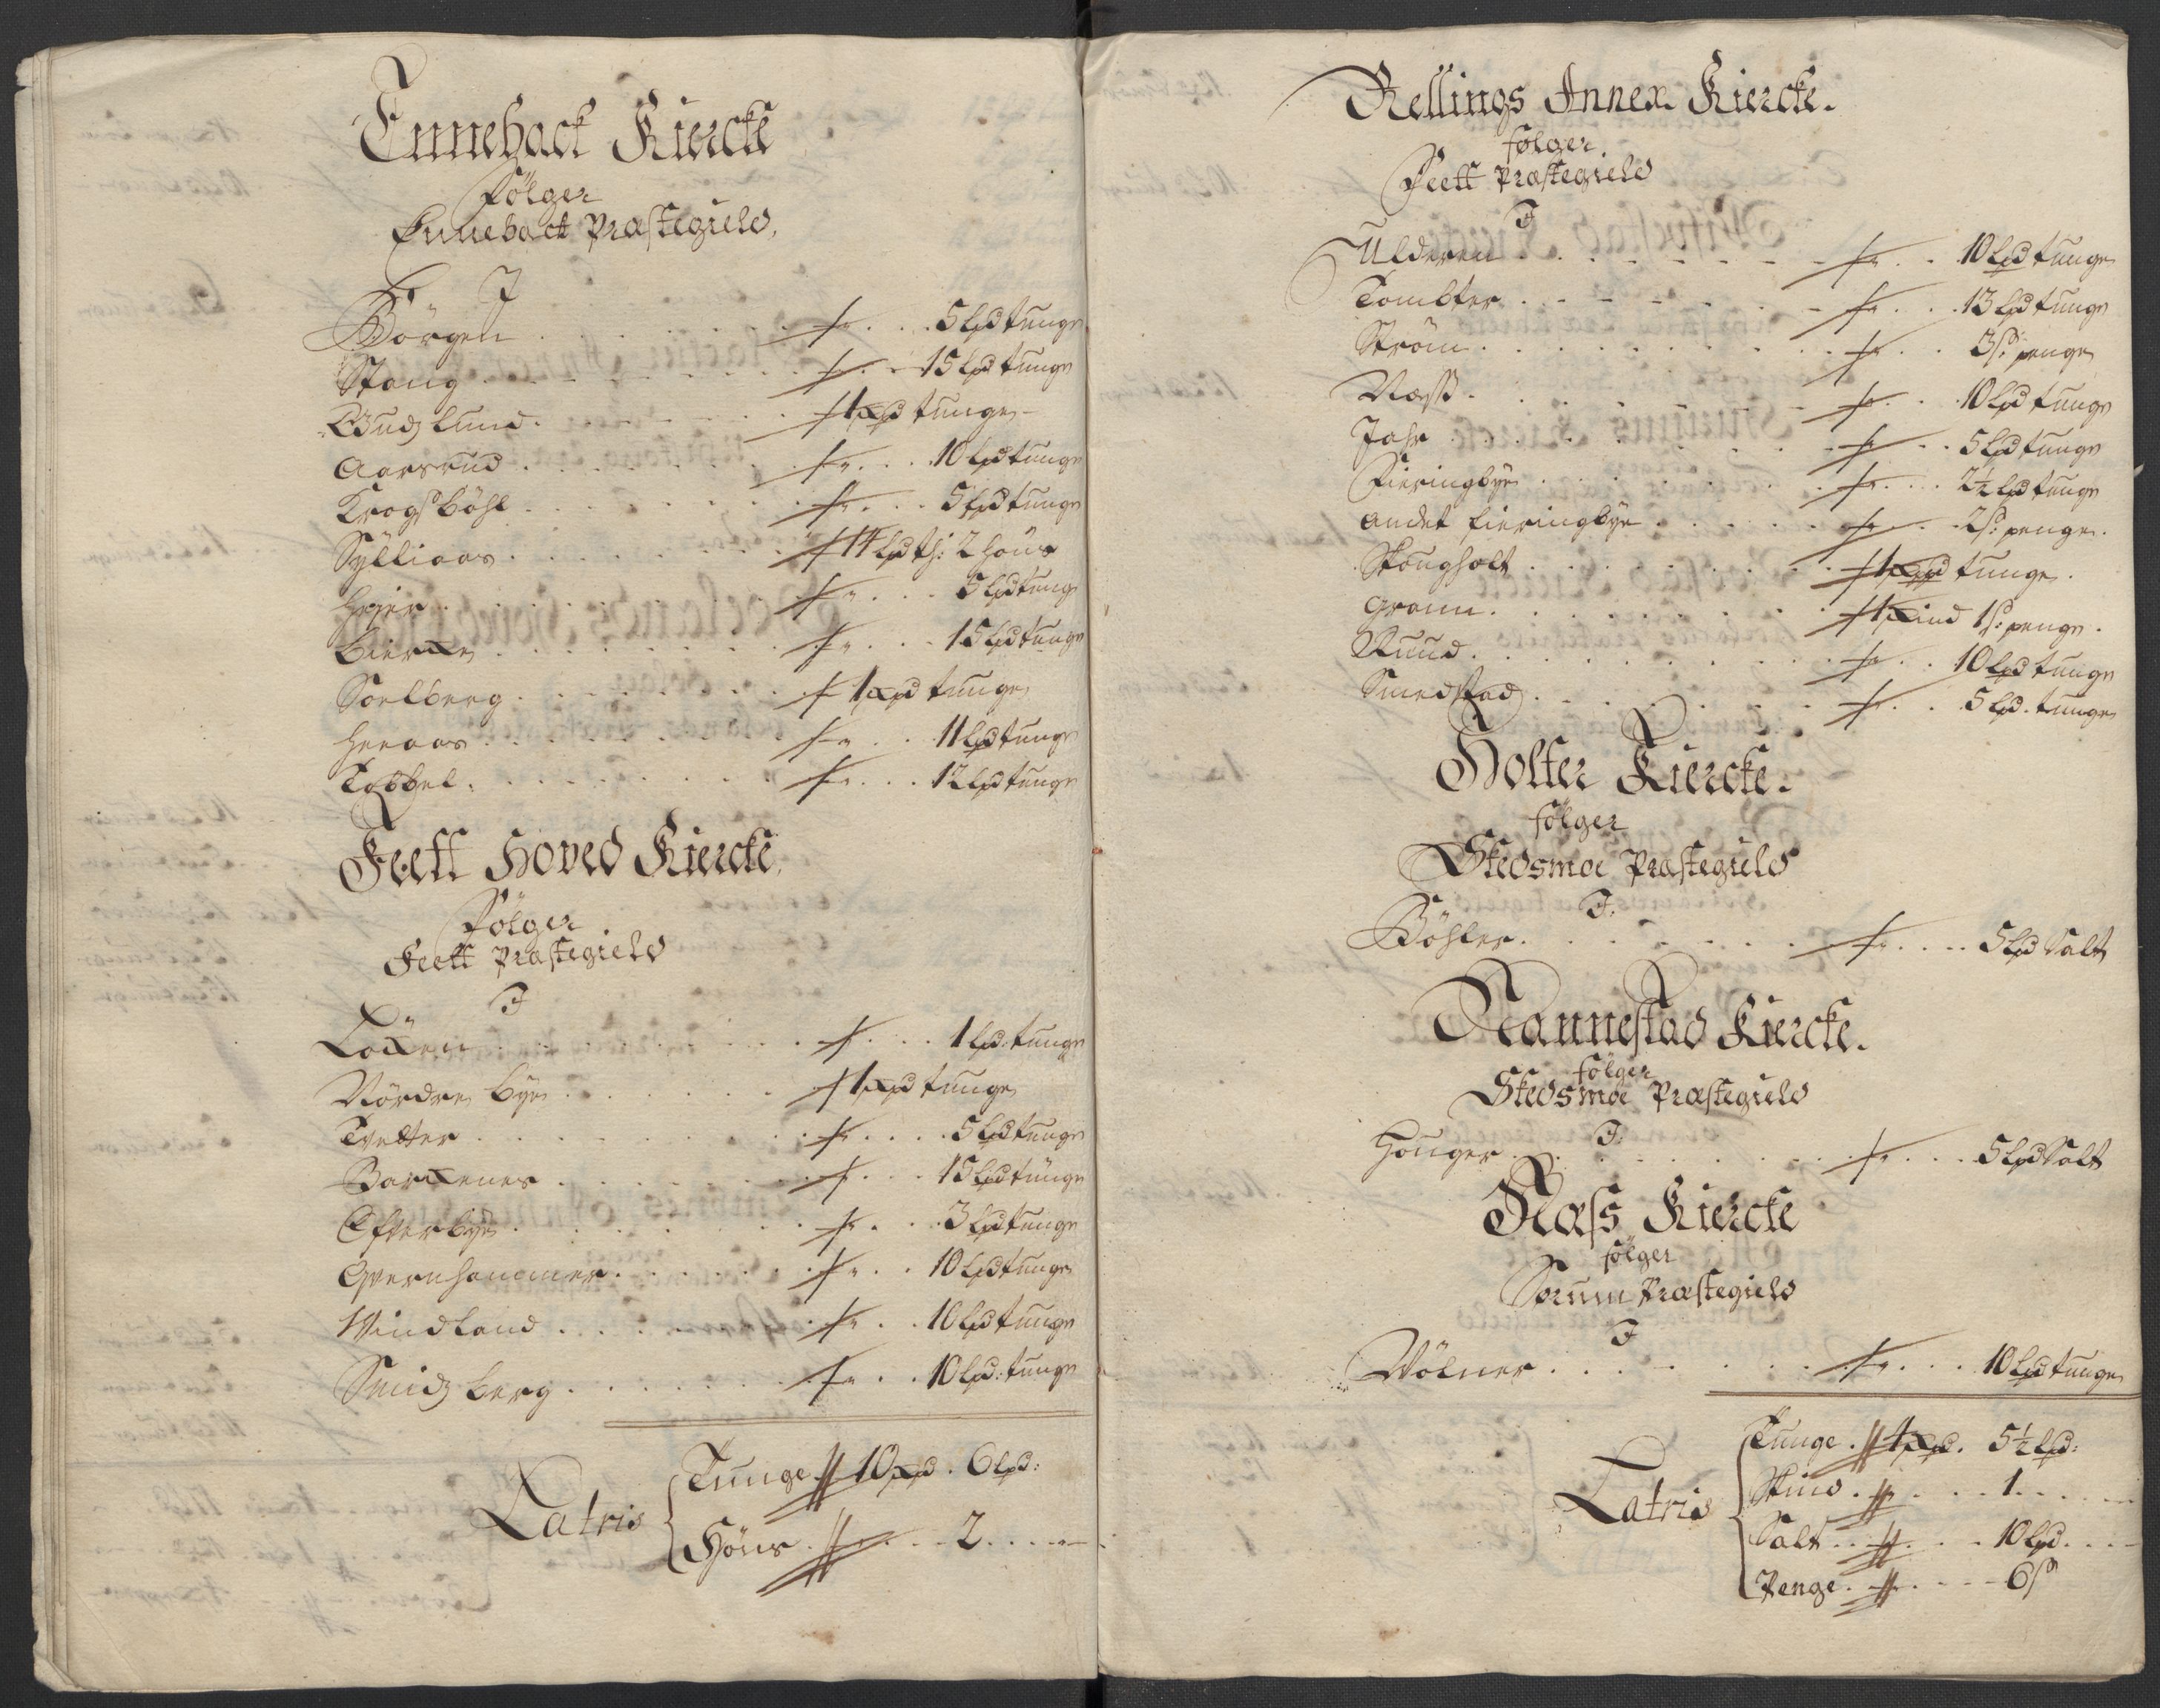 Enneback Kiercke
Følger
Enneback Præstegield,
I
Börgen . . . . . . 5 Lpd tunge
Stang . . . . . . 15 Lpd tunge
Gudslund . . . . 1 Xpd tunge
Aarsrud . . . . . . 10 Lpd tunge
Krogsböhl . . . . . . 5 Lpd tunge
Sÿlliaas . . . . . . 14 Lpd th: 2 höns
Heier . . . . . . 5 Lpd tunge
Bierxe . . . . . . 15 Lpd tunge
Soelberg . . . . . . 1 Xpd tunge
Heeaas . . . . . . 11 Lpd tunge
Tobbel . . . . . . 12 Lpd tunge
Feett Hoved Kiercke,
Følger
Feett Præstegield
I
Löxen . . . . . . 1 Lpd: tunge
Nördre bÿe . . . . . . 1 Xpd tunge
Tvetter . . . . . . 5 Lpd tunge
Barxenes . . . . . . 15 Lpd tunge
Efterbÿe . . . . . . 3 Lpd tunge
Qvernhammer . . . . . . 10 Lpd tunge
Windland . . . . . . 10 Lpd tunge
Smidsberg . . . . . . 10 Lpd: tunge
Latris
Tunge 10 Xpd . 6 Lpd:
Höns . . . 2 . . .
Rellings Annex Kiercke.
følger
Feett Præstegield
I
Ulderen . . . . . . 10 Lpd tunge
Tombter . . . . . . 13 Lpd tunge
Ström . . . . . . 3 s: penge
Næss . . . . . . 10 Lpd tunge
Jahr . . . . . . 5 Lpd tunge
Fieringbÿe . . . . . . 2½ Lpd tunge
Andet fieringbÿe . . . . . . 2 s: penge.
Skougholt . . . . . . 1 Xpd tunge.
Gramm . . . . . . 1 Xind 1 s: penge.
Ruud . . . . . . 10 Lpd tunge
Smedstad . . . . . . 5 Lpd. tunge
Holter Kiercke.
følger
Skedsmoe Præstegield
I:
Böhler . . . . . . 5 Lpd Salt
Nannestad Kiercke.
følger
Skedsmoe Præstegield
I:
Houger . . . . . . 5 Lpd Salt
Næss Kiercke
følger
Sørum Præstegield
I
Wölner . . . . . . 10 Lpd tunge
Latris
Tunge . 4 Xpd. 5½ Lpd:
Skind . . . . 1 . . .
Salt . . . . 10 Lpd. . .
Penge . . . . 6 s